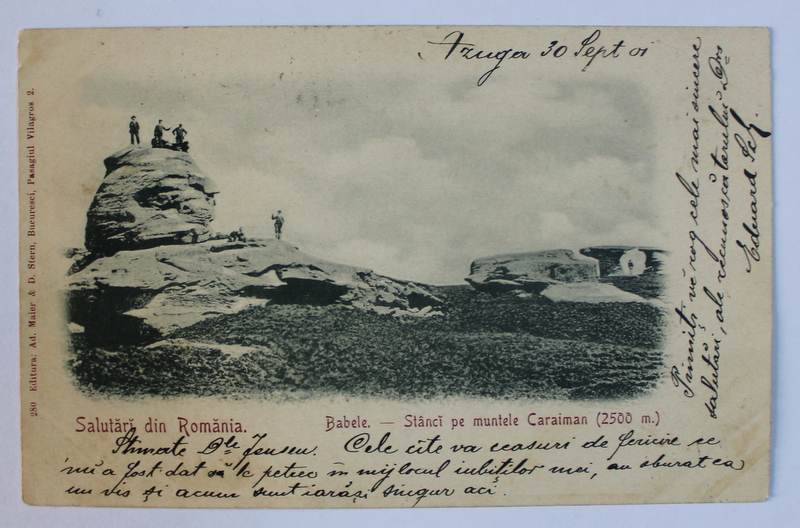 Azuga 30 Sept 01
Salutări din România.
Babele. — Stâncĭ pe muntele Caraiman (2500 m.)
Stimate Dle Jensen. Cele cite va ceasuri de fericire ce
mi'a fost dat să le petrec în mijlocul iubiților mei, au sburat ca
un vis și acum sunt iarăși singur aci.
Primiți vĕ rog cele mai sincere
salutări, ale recunoscatorului Dvs
Eduard
280 Editura: Ad. Maier & D. Stern, Bucuresci, Pasagiul Vilagros 2.